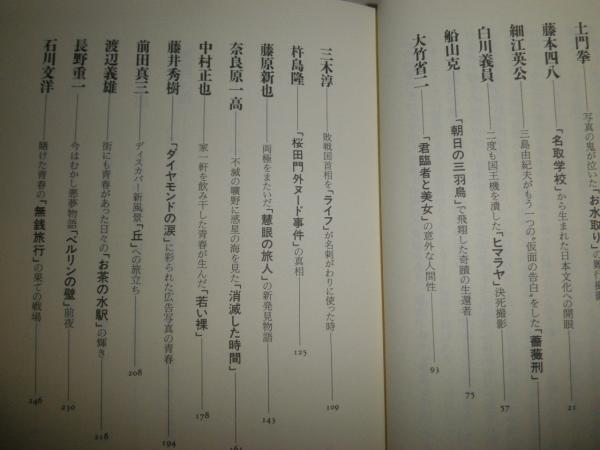 土門拳
写真の鬼が泣いた「お水取り」の難行撮
藤本四八
「名取学校」から生まれた日本文化への開眼
21
細江英公
三島由紀夫がもう一つの“仮面の告白”をした「薔薇刑」
白川義員
二度も国王機を潰した「ヒマラヤ」決死撮影
57
船山克
「朝日の三羽烏」で飛翔した奇蹟の生還者
75
大竹省二
「君臨者と美女」の意外な人間性
93
三木淳
敗戦国首相を「ライフ」が名刺がわりに使った時
109
杵島隆
「桜田門外ヌード事件」の真相
125
藤原新也
両極をまたいだ「慧眼の旅人」の新発見物語
143
奈良原一高
不滅の曠野に惑星の海を見た「消滅した時間」
161
中村正也
家一軒を飲み干した青春が生んだ「若い裸」
178
藤井秀樹
「ダイヤモンドの涙」に彩られた広告写真の青春
194
前田真三
ディスカバー新風景「丘」への旅立ち
208
渡辺義雄
街にも青春があった日々の「お茶の水駅」の輝き
218
長野重一
今はむかし悪夢物語「ベルリンの壁」前夜
230
石川文洋
賭けた青春の「無銭旅行」の果ての戦場
246